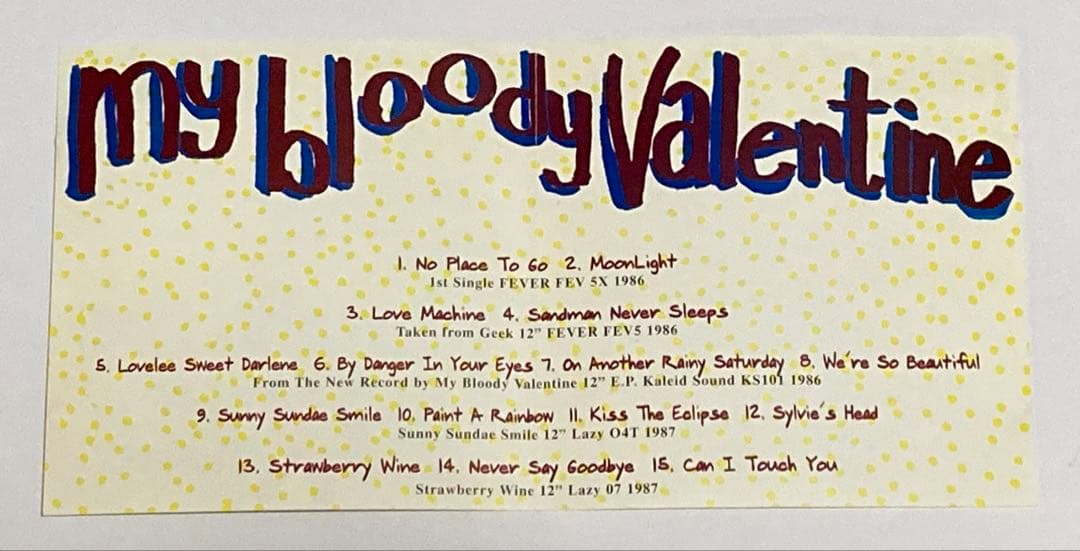 my bloody Valentine
1. No Place To Go 2. MoonLight
1st Single FEVER FEV 5X 1986
3. Love Machine 4. Sandman Never Sleeps
Taken from Geek 12" FEVER FEV5 1986
5. Lovelee Sweet Darlene 6. By Danger In Your Eyes 7. On Another Rainy Saturday 8. We're So Beautiful
From The New Record by My Bloody Valentine 12" E.P. Kaleid Sound KS101 1986
9. Sunny Sundae Smile 10. Paint A Rainbow 11. Kiss The Eclipse 12. Sylvie's Head
Sunny Sundae Smile 12" Lazy O4T 1987
13. Strawberry Wine 14. Never Say Goodbye 15. Can I Touch You
Strawberry Wine 12" Lazy 07 1987